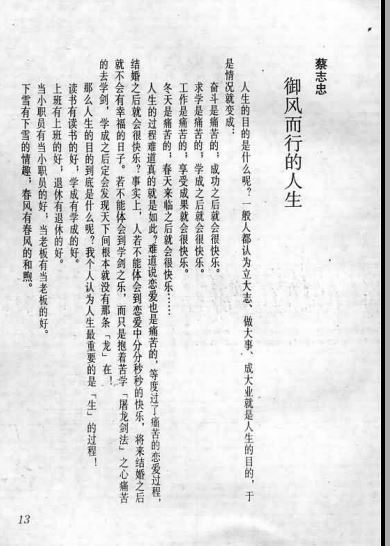 蔡志忠
御风而行的人生
人生的目的是什么呢？一般人都认为立大志、做大事、成大业就是人生的目的，于
是情况就变成：
奋斗是痛苦的；成功之后就会很快乐。
求学是痛苦的；学成之后就会很快乐。
工作是痛苦的；享受成果就会很快乐。
冬天是痛苦的；春天来临之后就会很快乐……
人生的过程难道真的就是如此？难道说恋爱也是痛苦的，等度过了痛苦的恋爱过程，
结婚之后就会很快乐？事实上，人若不能体会到恋爱中分分秒秒的快乐，将来结婚之后
就不会有幸福的日子。若不能体会到学剑之乐，而只是抱着苦学「屠龙剑法」之心痛苦
的去学剑，学成之后定会发现天下间根本就没有那条「龙」在！
那么人生的目的到底是什么呢？我个人认为人生最重要的是「生」的过程！
读书有读书的好，学成有学成的好。
上班有上班的好，退休有退休的好。
当小职员有当小职员的好，当老板有当老板的好。
下雪有下雪的情趣，春风有春风的和煦。
13